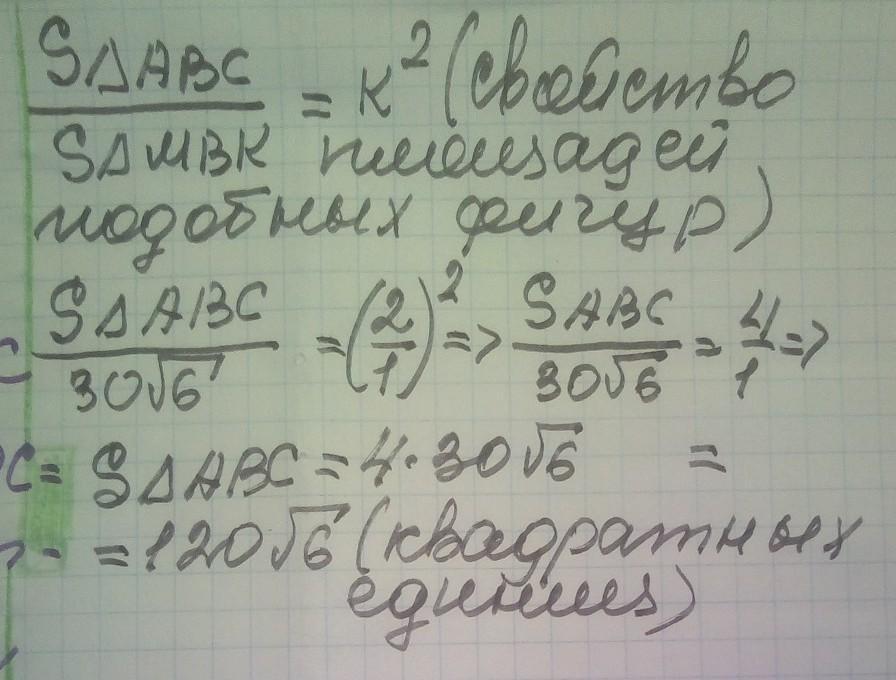 SΔABC
――― = к² (свойство
SΔMBK площадей
подобных фигур)
SΔABC/30√6 = (2/1)² => SABC/30√6 = 4/1 =>
C= SΔABC = 4·30√6 =
= 120√6 (квадратных
единиц)